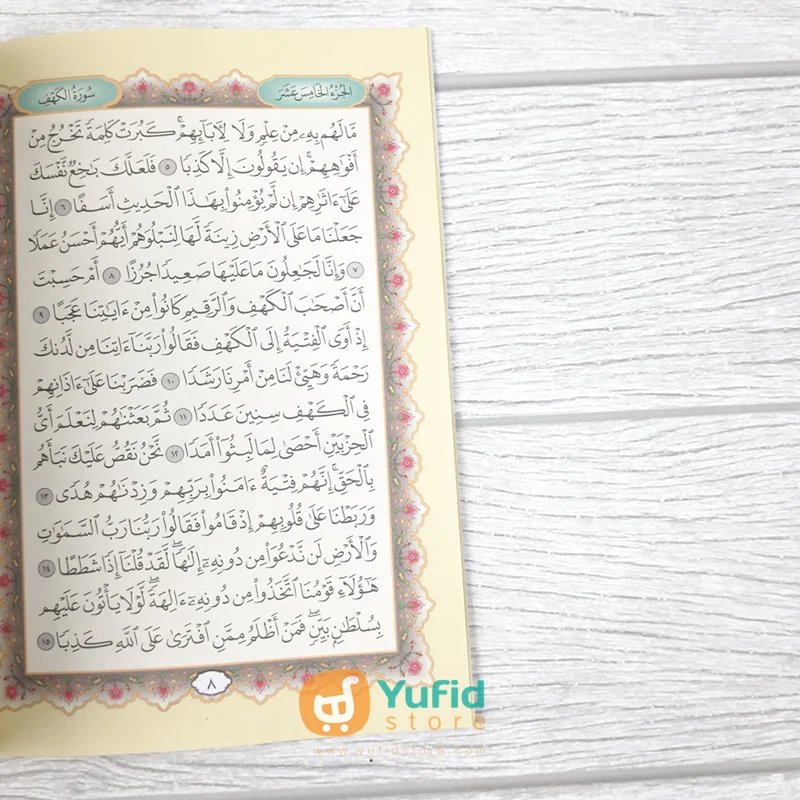 الجُزْءُ الخَامِسَ عَشَرَ
سُورَةُ الكَهْفِ
مَّا لَهُم بِهِۦ مِنْ عِلْمٍ وَلَا لِأٓبَآئِهِمْۚ كَبُرَتْ كَلِمَةً تَخْرُجُ مِنْ
أَفْوَٰهِهِمْۚ إِن يَقُولُونَ إِلَّا كَذِبًا ٥ فَلَعَلَّكَ بَٰخِعٌ نَّفْسَكَ
عَلَىٰٓ ءَاثَٰرِهِمْ إِن لَّمْ يُؤْمِنُوا۟ بِهَٰذَا ٱلْحَدِيثِ أَسَفًا ٦ إِنَّا
جَعَلْنَا مَا عَلَى ٱلْأَرْضِ زِينَةً لَّهَا لِنَبْلُوَهُمْ أَيُّهُمْ أَحْسَنُ عَمَلًا
٧ وَإِنَّا لَجَٰعِلُونَ مَا عَلَيْهَا صَعِيدًا جُرُزًا ٨ أَمْ حَسِبْتَ
أَنَّ أَصْحَٰبَ ٱلْكَهْفِ وَٱلرَّقِيمِ كَانُوا۟ مِنْ ءَايَٰتِنَا عَجَبًا ٩
إِذْ أَوَى ٱلْفِتْيَةُ إِلَى ٱلْكَهْفِ فَقَالُوا۟ رَبَّنَآ ءَاتِنَا مِن لَّدُنكَ
رَحْمَةً وَهَيِّئْ لَنَا مِنْ أَمْرِنَا رَشَدًا ١٠ فَضَرَبْنَا عَلَىٰٓ ءَاذَانِهِمْ
فِى ٱلْكَهْفِ سِنِينَ عَدَدًا ١١ ثُمَّ بَعَثْنَٰهُمْ لِنَعْلَمَ أَىُّ
ٱلْحِزْبَيْنِ أَحْصَىٰ لِمَا لَبِثُوٓا۟ أَمَدًا ١٢ نَّحْنُ نَقُصُّ عَلَيْكَ نَبَأَهُم
بِٱلْحَقِّۚ إِنَّهُمْ فِتْيَةٌ ءَامَنُوا۟ بِرَبِّهِمْ وَزِدْنَٰهُمْ هُدًى ١٣
وَرَبَطْنَا عَلَىٰ قُلُوبِهِمْ إِذْ قَامُوا۟ فَقَالُوا۟ رَبُّنَا رَبُّ ٱلسَّمَٰوَٰتِ
وَٱلْأَرْضِ لَن نَّدْعُوَا۟ مِن دُونِهِۦٓ إِلَٰهًاۖ لَّقَدْ قُلْنَآ إِذًا شَطَطًا ١٤
هَٰٓؤُلَآءِ قَوْمُنَا ٱتَّخَذُوا۟ مِن دُونِهِۦٓ ءَالِهَةًۖ لَّوْلَا يَأْتُونَ عَلَيْهِم
بِسُلْطَٰنٍۭ بَيِّنٍۖ فَمَنْ أَظْلَمُ مِمَّنِ ٱفْتَرَىٰ عَلَى ٱللَّهِ كَذِبًا ١٥
٨
Yufid
store
www.yufidstore.com